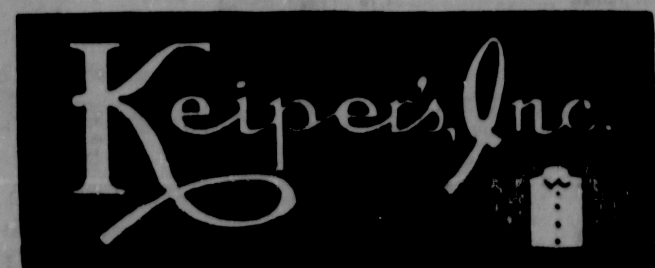 Keiper's, Inc.